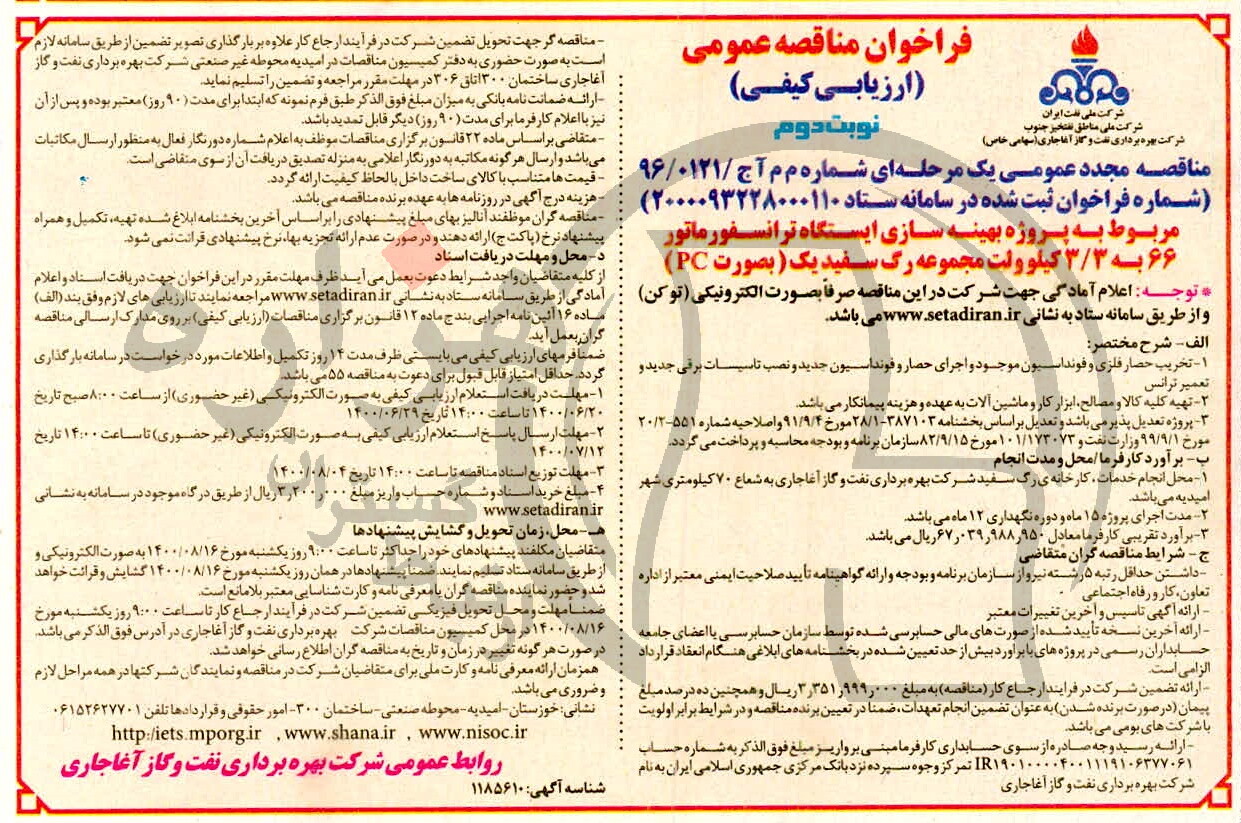 فراخوان مناقصه عمومی
(ارزیابی کیفی)
نوبت دوم
شرکت ملی نفت ایران
شرکت ملی مناطق نفتخیز جنوب
شرکت بهره برداری نفت و گاز آغاجاری (سهامی خاص)
مناقصه مجدد عمومی یک مرحله‌ای شماره م م آ ج /۹۶/۰۱۲۱
(شماره فراخوان ثبت شده در سامانه ستاد ۲۰۰۰۰۹۳۲۲۸۰۰۰۱۱۰)
مربوط به پروژه بهینه سازی ایستگاه ترانسفورماتور
۶۶ به ۳/۳ کیلو ولت مجموعه رگ سفید یک (بصورت PC)
* توجه: اعلام آمادگی جهت شرکت در این مناقصه صرفاً بصورت الکترونیکی (توکن)
و از طریق سامانه ستاد به نشانی www.setadiran.ir می باشد.
الف- شرح مختصر:
۱- تخریب حصار فلزی و فونداسیون موجود و اجرای حصار و فونداسیون جدید و نصب تاسیسات برقی جدید و
تعمیر ترانس
۲- تهیه کلیه کالا و مصالح، ابزار کار و ماشین آلات به عهده و هزینه پیمانکار می باشد.
۳- پروژه تعدیل پذیر می باشد و تعدیل بر اساس بخشنامه ۳۸۷۱۰۳-۲۸/۱ مورخ ۹۱/۹/۴ و اصلاحیه شماره ۵۵۱-۲۰/۲
مورخ ۹۹/۹/۱ وزارت نفت و ۱۰۱/۱۷۳۰۷۳ مورخ ۸۲/۹/۱۵ سازمان برنامه و بودجه محاسبه و پرداخت می گردد.
ب- برآورد کارفرما/محل و مدت انجام
۱- محل انجام خدمات، کارخانه ی رگ سفید شرکت بهره برداری نفت و گاز آغاجاری به شعاع ۷۰ کیلومتری شهر
امیدیه می باشد.
۲- مدت اجرای پروژه ۱۵ ماه و دوره نگهداری ۱۲ ماه می باشد.
۳- برآورد تقریبی کارفرما معادل ۶۷٫۰۳۹٫۹۸۸٫۹۵۰ ریال می باشد.
ج- شرایط مناقصه گران متقاضی
-داشتن حداقل رتبه ۵ رشته نیرو از سازمان برنامه و بودجه و ارائه گواهینامه تأیید صلاحیت ایمنی معتبر از اداره
تعاون، کار و رفاه اجتماعی
- ارائه آگهی تاسیس و آخرین تغییرات معتبر
- ارائه آخرین نسخه تأیید شده از صورت های مالی حسابرسی شده توسط سازمان حسابرسی یا اعضای جامعه
حسابداران رسمی در پروژه های با برآورد بیش از حد تعیین شده در بخشنامه های ابلاغی هنگام انعقاد قرارداد
الزامی است.
-ارائه تضمین شرکت در فرایند ارجاع کار (مناقصه) به مبلغ ۳٫۳۵۱٫۹۹۹٫۰۰۰ ریال و همچنین ده درصد مبلغ
پیمان (در صورت برنده شدن) به عنوان تضمین انجام تعهدات، ضمنا در تعیین برنده مناقصه و در شرایط برابر اولویت
با شرکت های بومی می باشد.
- ارائه رسید وجه صادره از سوی حسابداری کارفرما مبنی بر واریز مبلغ فوق الذکر به شماره حساب
IR۱۹۰۱۰۰۰۰۴۰۰۱۱۱۹۱۰۶۳۷۷۰۶۱ تمرکز وجوه سپرده نزد بانک مرکزی جمهوری اسلامی ایران به نام
شرکت بهره برداری نفت و گاز آغاجاری
- مناقصه گر جهت تحویل تضمین شرکت در فرآیند ارجاع کار علاوه بر بارگذاری تصویر تضمین از طریق سامانه لازم
است به صورت حضوری به دفتر کمیسیون مناقصات در امیدیه محوطه غیر صنعتی شرکت بهره برداری نفت و گاز
آغاجاری ساختمان ۳۰۰ اتاق ۳۰۶ در مهلت مقرر مراجعه و تضمین را تسلیم نماید.
-ارائه ضمانت نامه بانکی به میزان مبلغ فوق الذکر طبق فرم نمونه که ابتدا برای مدت (۹۰ روز) معتبر بوده و پس از آن
نیز با اعلام کارفرما برای مدت (۹۰ روز) دیگر قابل تمدید باشد.
-متقاضی بر اساس ماده ۲۲ قانون برگزاری مناقصات موظف به اعلام شماره دورنگار فعال به منظور ارسال مکاتبات
می باشد و ارسال هر گونه مکاتبه به دورنگار اعلامی به منزله تصدیق دریافت آن از سوی متقاضی است.
- قیمت ها متناسب با کالای ساخت داخل با لحاظ کیفیت ارائه گردد.
-هزینه درج آگهی در روزنامه ها به عهده برنده مناقصه می باشد.
-مناقصه گران موظفند آنالیز بهای مبلغ پیشنهادی را بر اساس آخرین بخشنامه ابلاغ شده تهیه، تکمیل و همراه
پیشنهاد نرخ (پاکت ج) ارائه دهند و در صورت عدم ارائه تجزیه بها، نرخ پیشنهادی قرائت نمی شود.
د- محل و مهلت دریافت اسناد
از کلیه متقاضیان واجد شرایط دعوت بعمل می آید ظرف مهلت مقرر در این فراخوان جهت دریافت اسناد و اعلام
آمادگی از طریق سامانه ستاد به نشانی www.setadiran.ir مراجعه نمایند تا ارزیابی های لازم وفق بند (الف)
ماده ۱۶ آئین نامه اجرایی بند ج ماده ۱۲ قانون برگزاری مناقصات (ارزیابی کیفی) بر روی مدارک ارسالی مناقصه
گران بعمل آید.
ضمنا فرمهای ارزیابی کیفی می بایستی ظرف مدت ۱۴ روز تکمیل و اطلاعات مورد درخواست در سامانه بارگذاری
گردد. حداقل امتیاز قابل قبول برای دعوت به مناقصه ۵۵ می باشد.
۱-مهلت دریافت استعلام ارزیابی کیفی به صورت الکترونیکی (غیر حضوری) از ساعت ۸:۰۰ صبح تاریخ
۱۴۰۰/۰۶/۲۰ تا ساعت ۱۴:۰۰ تاریخ ۱۴۰۰/۰۶/۲۹
۲-مهلت ارسال پاسخ استعلام ارزیابی کیفی به صورت الکترونیکی (غیر حضوری) تا ساعت ۱۴:۰۰ تاریخ
۱۴۰۰/۰۷/۱۲
۳-مهلت توزیع اسناد مناقصه تا ساعت ۱۴:۰۰ تاریخ ۱۴۰۰/۰۸/۰۴
۴-مبلغ خرید اسناد و شماره حساب واریز مبلغ ۳٫۲۰۰٫۰۰۰ ریال از طریق درگاه موجود در سامانه به نشانی
www.setadiran.ir
هـ- محل، زمان تحویل و گشایش پیشنهادها
متقاضیان مکلفند پیشنهادهای خود را حداکثر تا ساعت ۹:۰۰ روز یکشنبه مورخ ۱۴۰۰/۰۸/۱۶ به صورت الکترونیکی و
از طریق سامانه ستاد تسلیم نمایند. ضمناً پیشنهادها در همان روز یکشنبه مورخ ۱۴۰۰/۰۸/۱۶ گشایش و قرائت خواهد
شد و حضور نماینده مناقصه گران با معرفی نامه و کارت شناسایی معتبر بلامانع است.
ضمنا مهلت و محل تحویل فیزیکی تضمین شرکت در فرآیند ارجاع کار تا ساعت ۹:۰۰ روز یکشنبه مورخ
۱۴۰۰/۰۸/۱۶ در محل کمیسیون مناقصات شرکت بهره برداری نفت و گاز آغاجاری در آدرس فوق الذکر می باشد.
در صورت هر گونه تغییر در زمان و تاریخ به مناقصه گران اطلاع رسانی خواهد شد.
همزمان ارائه معرفی نامه و کارت ملی برای متقاضیان شرکت در مناقصه و نمایندگان شرکتها در همه مراحل لازم
و ضروری می باشد.
نشانی: خوزستان- امیدیه- محوطه صنعتی- ساختمان ۳۰۰- امور حقوقی و قراردادها تلفن ۰۶۱۵۲۶۲۷۷۰۱
http:/iets.mporg.ir , www.shana.ir , www.nisoc.ir
روابط عمومی شرکت بهره برداری نفت و گاز آغاجاری
شناسه آگهی: ۱۱۸۵۶۱۰
هزاره